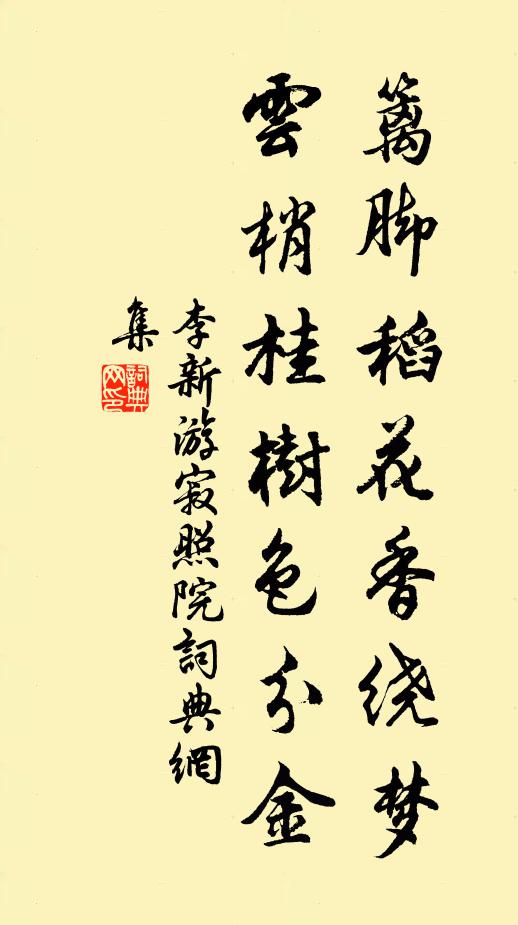 篱脚稻花香绕梦
雲梢桂樹色分金
李新游寂照院詞典網
集
詞典
网印